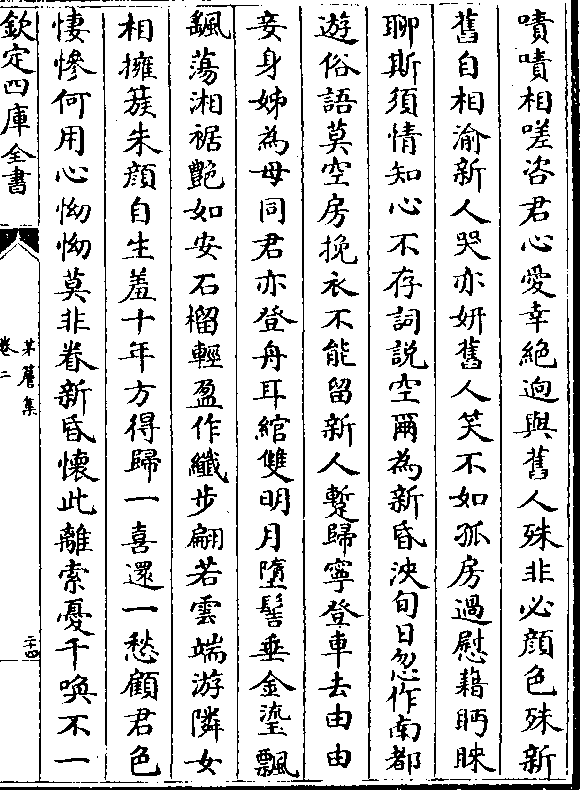 嘖嘖相嗟咨君心愛幸絶逈與舊人殊非必顔色殊新
舊自相渝新人哭亦妍舊人笑不如孤房過慰藉眄睞
聊斯須情知心不存詞説空爾為新昏浹旬日忽作南都
遊俗語莫空房挽衣不能留新人蹔歸寧登車去由由
妾身姊為母同君亦登舟耳綰雙明月墮髻垂金鎏飄
颻蕩湘裾艶如安石榴輕盈作纖步翩若雲端游隣女
相擁簇朱顔自生羞十年方得歸一喜還一愁顧君色
悽慘何用心怮怮莫非眷新昏懷此離索憂千喚不一
欽定四庫全書
茅簷集
卷二
二十四